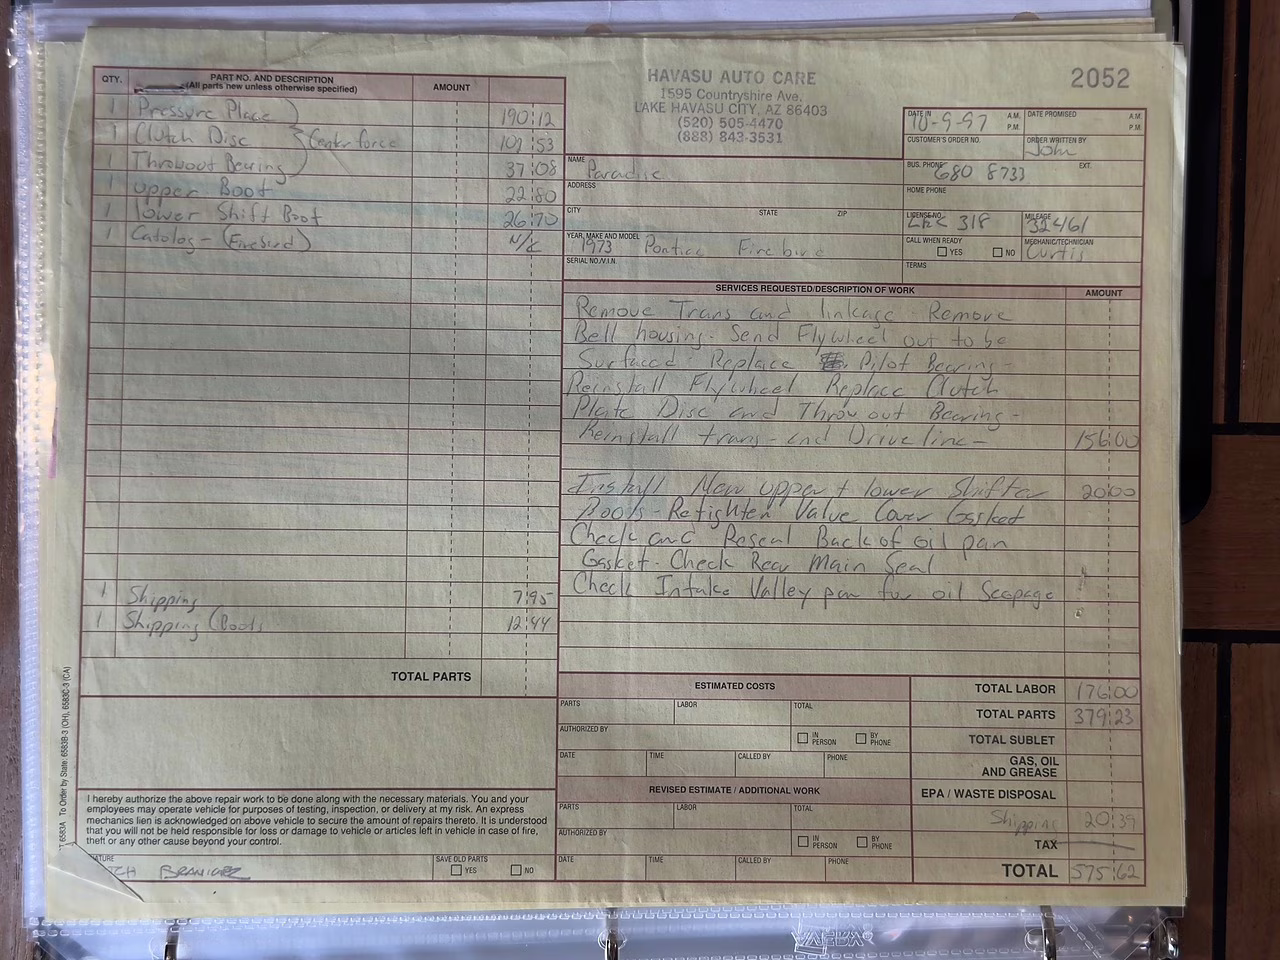 HAVASU AUTO CARE
1595 Countryshire Ave.
LAKE HAVASU CITY, AZ 86403
(520) 505-4470
(888) 843-3531
2052
QTY. PART NO. AND DESCRIPTION AMOUNT
(All parts new unless otherwise specified)
1 Pressure Place 190:12
1 Clutch Disc Centerforce 53
1 Throwout Bearing 37:08
1 upper Boot 22:80
1 lower Shift Boot 26:70
1 Catolog - (Firebird) N/C
1 Shipping 7:95
1 Shipping (Boots 12:44
TOTAL PARTS
DATE IN 10-9-97 A.M. P.M. DATE PROMISED A.M. P.M.
CUSTOMER'S ORDER NO. ORDER WRITTEN BY John
NAME Paradise BUS. PHONE 680 8733 EXT.
ADDRESS HOME PHONE
CITY STATE ZIP LICENSE NO. 318 MILEAGE 32461
YEAR, MAKE AND MODEL 1973 Pontiac Firebird CALL WHEN READY YES NO MECHANIC/TECHNICIAN Curtis
SERIAL NO./V.I.N. TERMS
SERVICES REQUESTED/DESCRIPTION OF WORK AMOUNT
Remove Trans and linkage - Remove
Bell housing - Send Flywheel out to be
Surfaced - Replace Pilot Bearing -
Reinstall Flywheel Replace Clutch
Plate Disc and Throw out Bearing -
Reinstall trans - and Drive line - 156:00
Install New upper + lower Shifter 20:00
Boots - Retighten Valve Cover Gasket
Check and Reseal Back of oil pan
Gasket - Check Rear Main Seal
Check Intake Valley pan for oil Seepage
ESTIMATED COSTS
PARTS LABOR TOTAL
AUTHORIZED BY IN PERSON BY PHONE
DATE TIME CALLED BY PHONE
REVISED ESTIMATE / ADDITIONAL WORK
PARTS LABOR TOTAL
AUTHORIZED BY IN PERSON BY PHONE
DATE TIME CALLED BY PHONE
TOTAL LABOR 176:00
TOTAL PARTS 379:23
TOTAL SUBLET
GAS, OIL
AND GREASE
EPA / WASTE DISPOSAL
Shipping 20:39
TAX
TOTAL 575:62
I hereby authorize the above repair work to be done along with the necessary materials. You and your
employees may operate vehicle for purposes of testing, inspection, or delivery at my risk. An express
mechanics lien is acknowledged on above vehicle to secure the amount of repairs thereto. It is understood
that you will not be held responsible for loss or damage to vehicle or articles left in vehicle in case of fire,
theft or any other cause beyond your control.
SAVE OLD PARTS YES NO
6583A To Order by State: 6583B-3 (OH), 6583C-3 (CA)